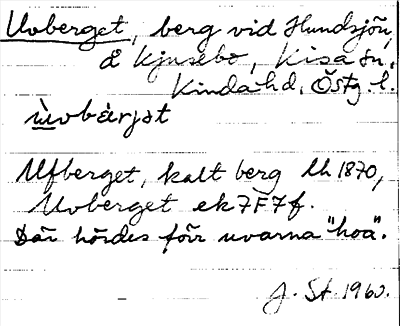 Uvberget, berg vid Hundsjön,
å Kjusebo, Kisa sn,
Kinda hd, Östg. l.
ùvbàrjət
Ufberget, kalt berg Lh 1870,
Uvberget ek 7F7f.
Där hördes förr uvarna "hoa".
J. St 1960.